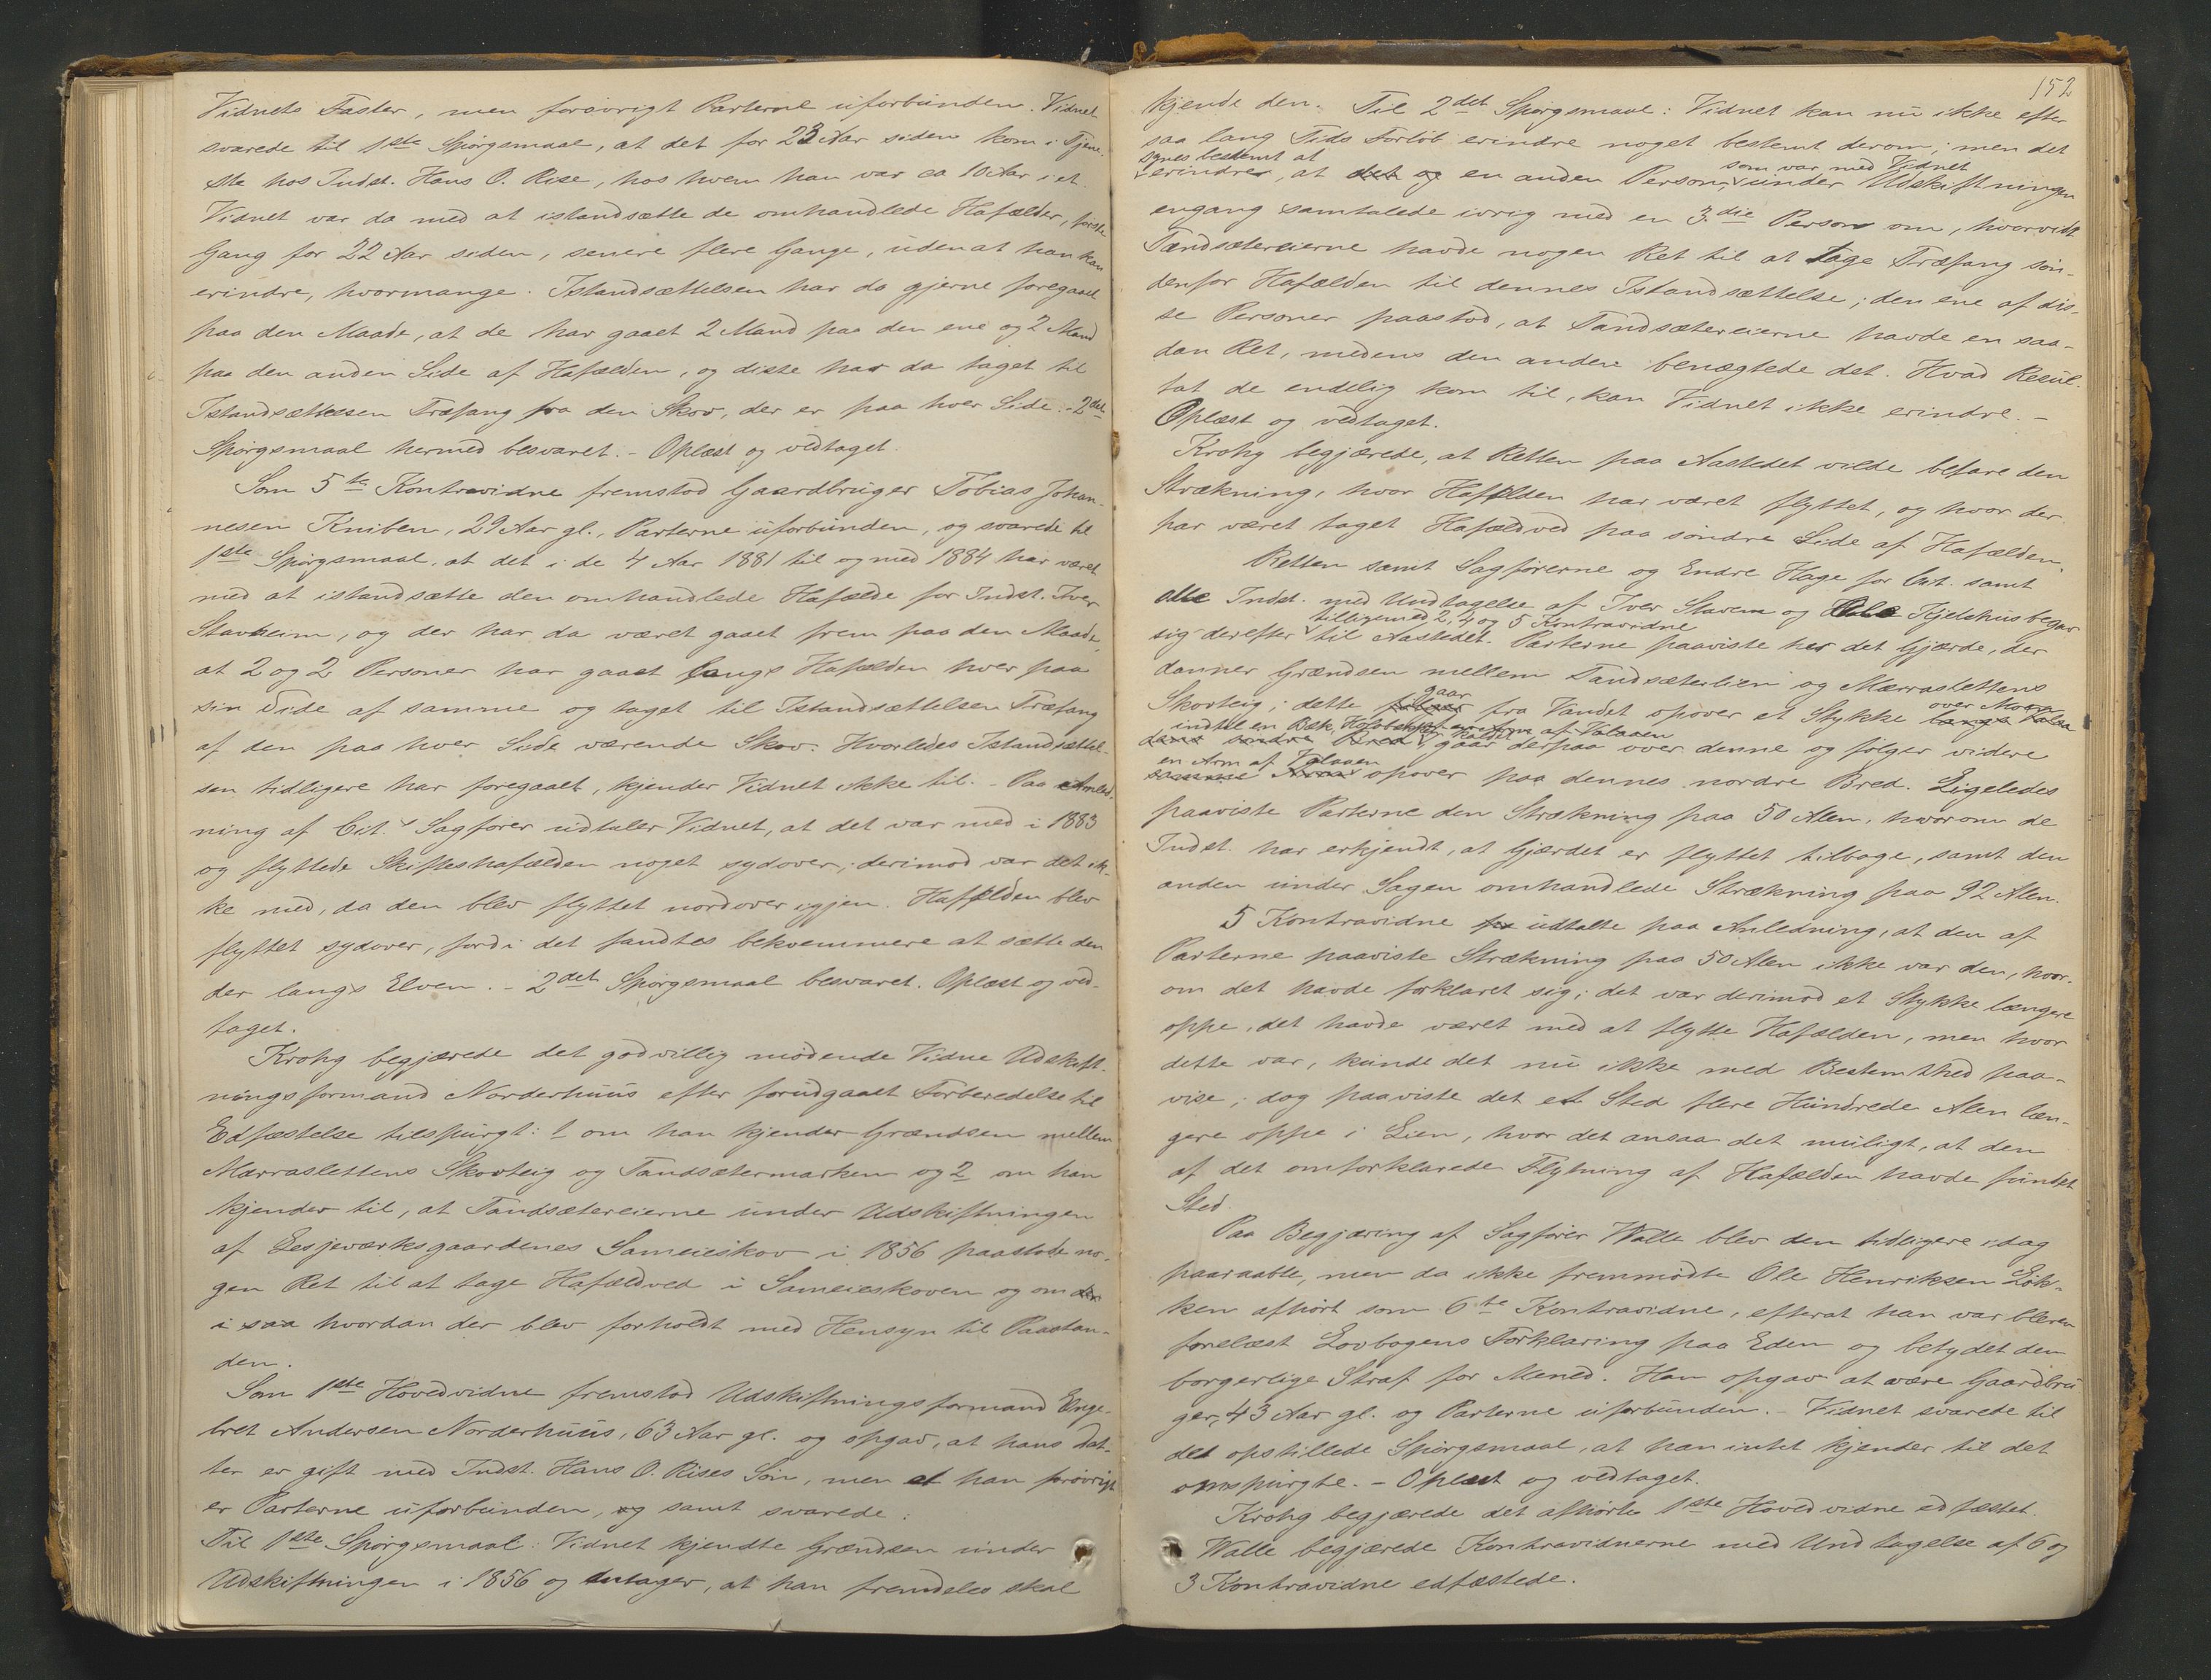 Vidnets Faster, men forøvrigt Parterne uforbunden. Vidnet
svarede til 1ste Spørgsmaal, at det for 23 Aar siden kom i Tjene-
ste hos Indst. Hans O. Rise, hos hvem han var ca 10 Aar i et.
Vidnet var da med at istandsætte de omhandlede Hafælder, første
Gang for 22 Aar siden, senere flere Gange, uden at han kan
erindre, hvormange. Istandsættelsen har da gjerne foregaaet
paa den Maade, at de har gaaet 2 Mand paa den ene og 2 Mand
paa den anden Side af Hafælden, og disse har da taget til
Istandsættelsen Træfang fra den Skov, der er paa hver Side. - 2det
Spørgsmaal hermed besvaret. - Oplæst og vedtaget.
Som 5te Kontravidne fremstod Gaardbruger Tobias Johan-
nesen Kniben, 29 Aar gl., Parterne uforbunden, og svarede til
1ste Spørgsmaal, at det i de 4 Aar 1881 til og med 1884 har været
med at istandsætte den omhandlede Hafælde for Indst. Iver
Stavheim, og der har da været gaaet frem paa den Maade,
at 2 og 2 Personer har gaaet langs Hafælden hver paa
sin Side af samme og taget til Istandsættelsen Træfang
af den paa hver Side værende Skov. Hvorledes Istandsættel-
sen tidligere har foregaaet, kjender Vidnet ikke til. - Paa Anled-
ning af Cit. Sagfører udtaler Vidnet, at det var med i 1883
og flyttede Skifteshafælden noget sydover; derimod var det ik-
ke med, da den blev flyttet nordover igjen. Hafælden blev
flyttet sydover, fordi det fandtes bekvemmere at sætte den
der langs Elven. - 2det Spørgsmaal besvaret. Oplæst og ved-
taget.
Krohg begjærede det godvillig mødende Vidne Udskift-
ningsformand Norderhuus efter forudgaaet Forberedelse til
Edfæstelse tilspurgt: 1 om han kjender Grændsen mellem
Mærraslettens Skovteig og Tandsætermarken og 2 om han
kjender til, at Tandsætereierne under Udskiftningen
af Lesjeværksgaardenes Sameieskov i 1856 paastode no-
gen Ret til at tage Hafældved i Sameieskoven og om
i saa hvordan der blev forholdt med Hensyn til Paastan-
den.
Som 1ste Hovedvidne fremstod Udskiftningsformand Enge-
bret Andersen Norderhuus, 63 Aar gl. og opgav, at hans Dat-
ter er gift med Indst. Hans O. Rises Søn, men at han forøvrigt
er Parterne uforbunden, og samt svarede:
Til 1ste Spørgsmaal: Vidnet kjendte Grændsen under
Udskiftningen i 1856 og antager, at han fremdeles skal
152
kjende den. Til 2det Spørgsmaal: Vidnet kan nu ikke efter
saa lang Tids Forløb erindre noget bestemt derom; men det
synes bestemt at
erindre, at det og en anden Person, under Udskiftningen
som var med Vidnet
engang samtalede ivrig med en 3die Person om, hvorvidt
Tandsætereierne havde nogen Ret til at tage Træfang søn-
denfor Hafælden til dennes Istandsættelse; den ene af dis-
se Personer paastod, at Tandsætereierne havde en saa-
dan Ret, medens den anden benægtede det. Hvad Resul-
tat de endelig kom til, kan Vidnet ikke erindre. -
Oplæst og vedtaget.
Krohg begjærede, at Retten paa Aastedet vilde befare den
Strækning, hvor Hafælden har været flyttet, og hvor der
har været taget Hafældved paa søndre Side af Hafælden.
Retten samt Sagførerne og Endre Hage for Cit. samt
alle Indst. med Undtagelse af Iver Starem og Ole Kjelshus begav
tilligemed 2, 4 og 5 Kontravidne
sig derefter til Aastedet. Parterne paaviste her det Gjærde, der
danner Grændsen mellem Tandsæterlien og Mærraslettens
gaar
Skovteig; dette følger fra Vandet opover et Stykke langs Valaa
over Moen
indtil en Bæk, kaldet en Arm af Valaaen
dens søndre Bred, gaar derpaa over denne og følger videre
en Arm af Valaaen
samme opover paa dennes nordre Bred. Ligeledes
paaviste Parterne den Strækning paa 50 Alen, hvorom de
Indst. har erkjendt, at Gjærdet er flyttet tilbage, samt den
anden under Sagen omhandlede Strækning paa 92 Alen.
5 Kontravidne udtalte paa Anledning, at den af
Parterne paaviste Strækning paa 50 Alen ikke var den, hvor-
om det havde forklaret sig; det var derimod et Stykke længere
oppe, det havde været med at flytte Hafælden, men hvor
dette var, kunde det nu ikke med Bestemthed paa-
vise; dog paaviste det et Sted flere Hundrede Alen læn-
gere oppe i Lien, hvor det ansaa det muligt, at den
af det omforklarede Flytning af Hafælden havde fundet
Sted.
Paa Begjæring af Sagfører Walle blev den tidligere idag
paaraabte, men da ikke fremmødte Ole Henriksen Løk-
ken afhørt som 6te Kontravidne, efterat han var bleven
forelæst Lovbogens Forklaring paa Eden og betydet den
borgerlige Straf for Mened. Han opgav at være Gaardbru
ger, 43 Aar gl. og Parterne uforbunden. - Vidnet svarede til
det opstillede Spørgsmaal, at han intet kjender til det
omspurgte. - Oplæst og vedtaget.
Krohg begjærede det afhørte 1ste Hovedvidne edfæstet.
Walle begjærede Kontravidnerne med Undtagelse af 6 og
3 Kontravidne edfæstede.